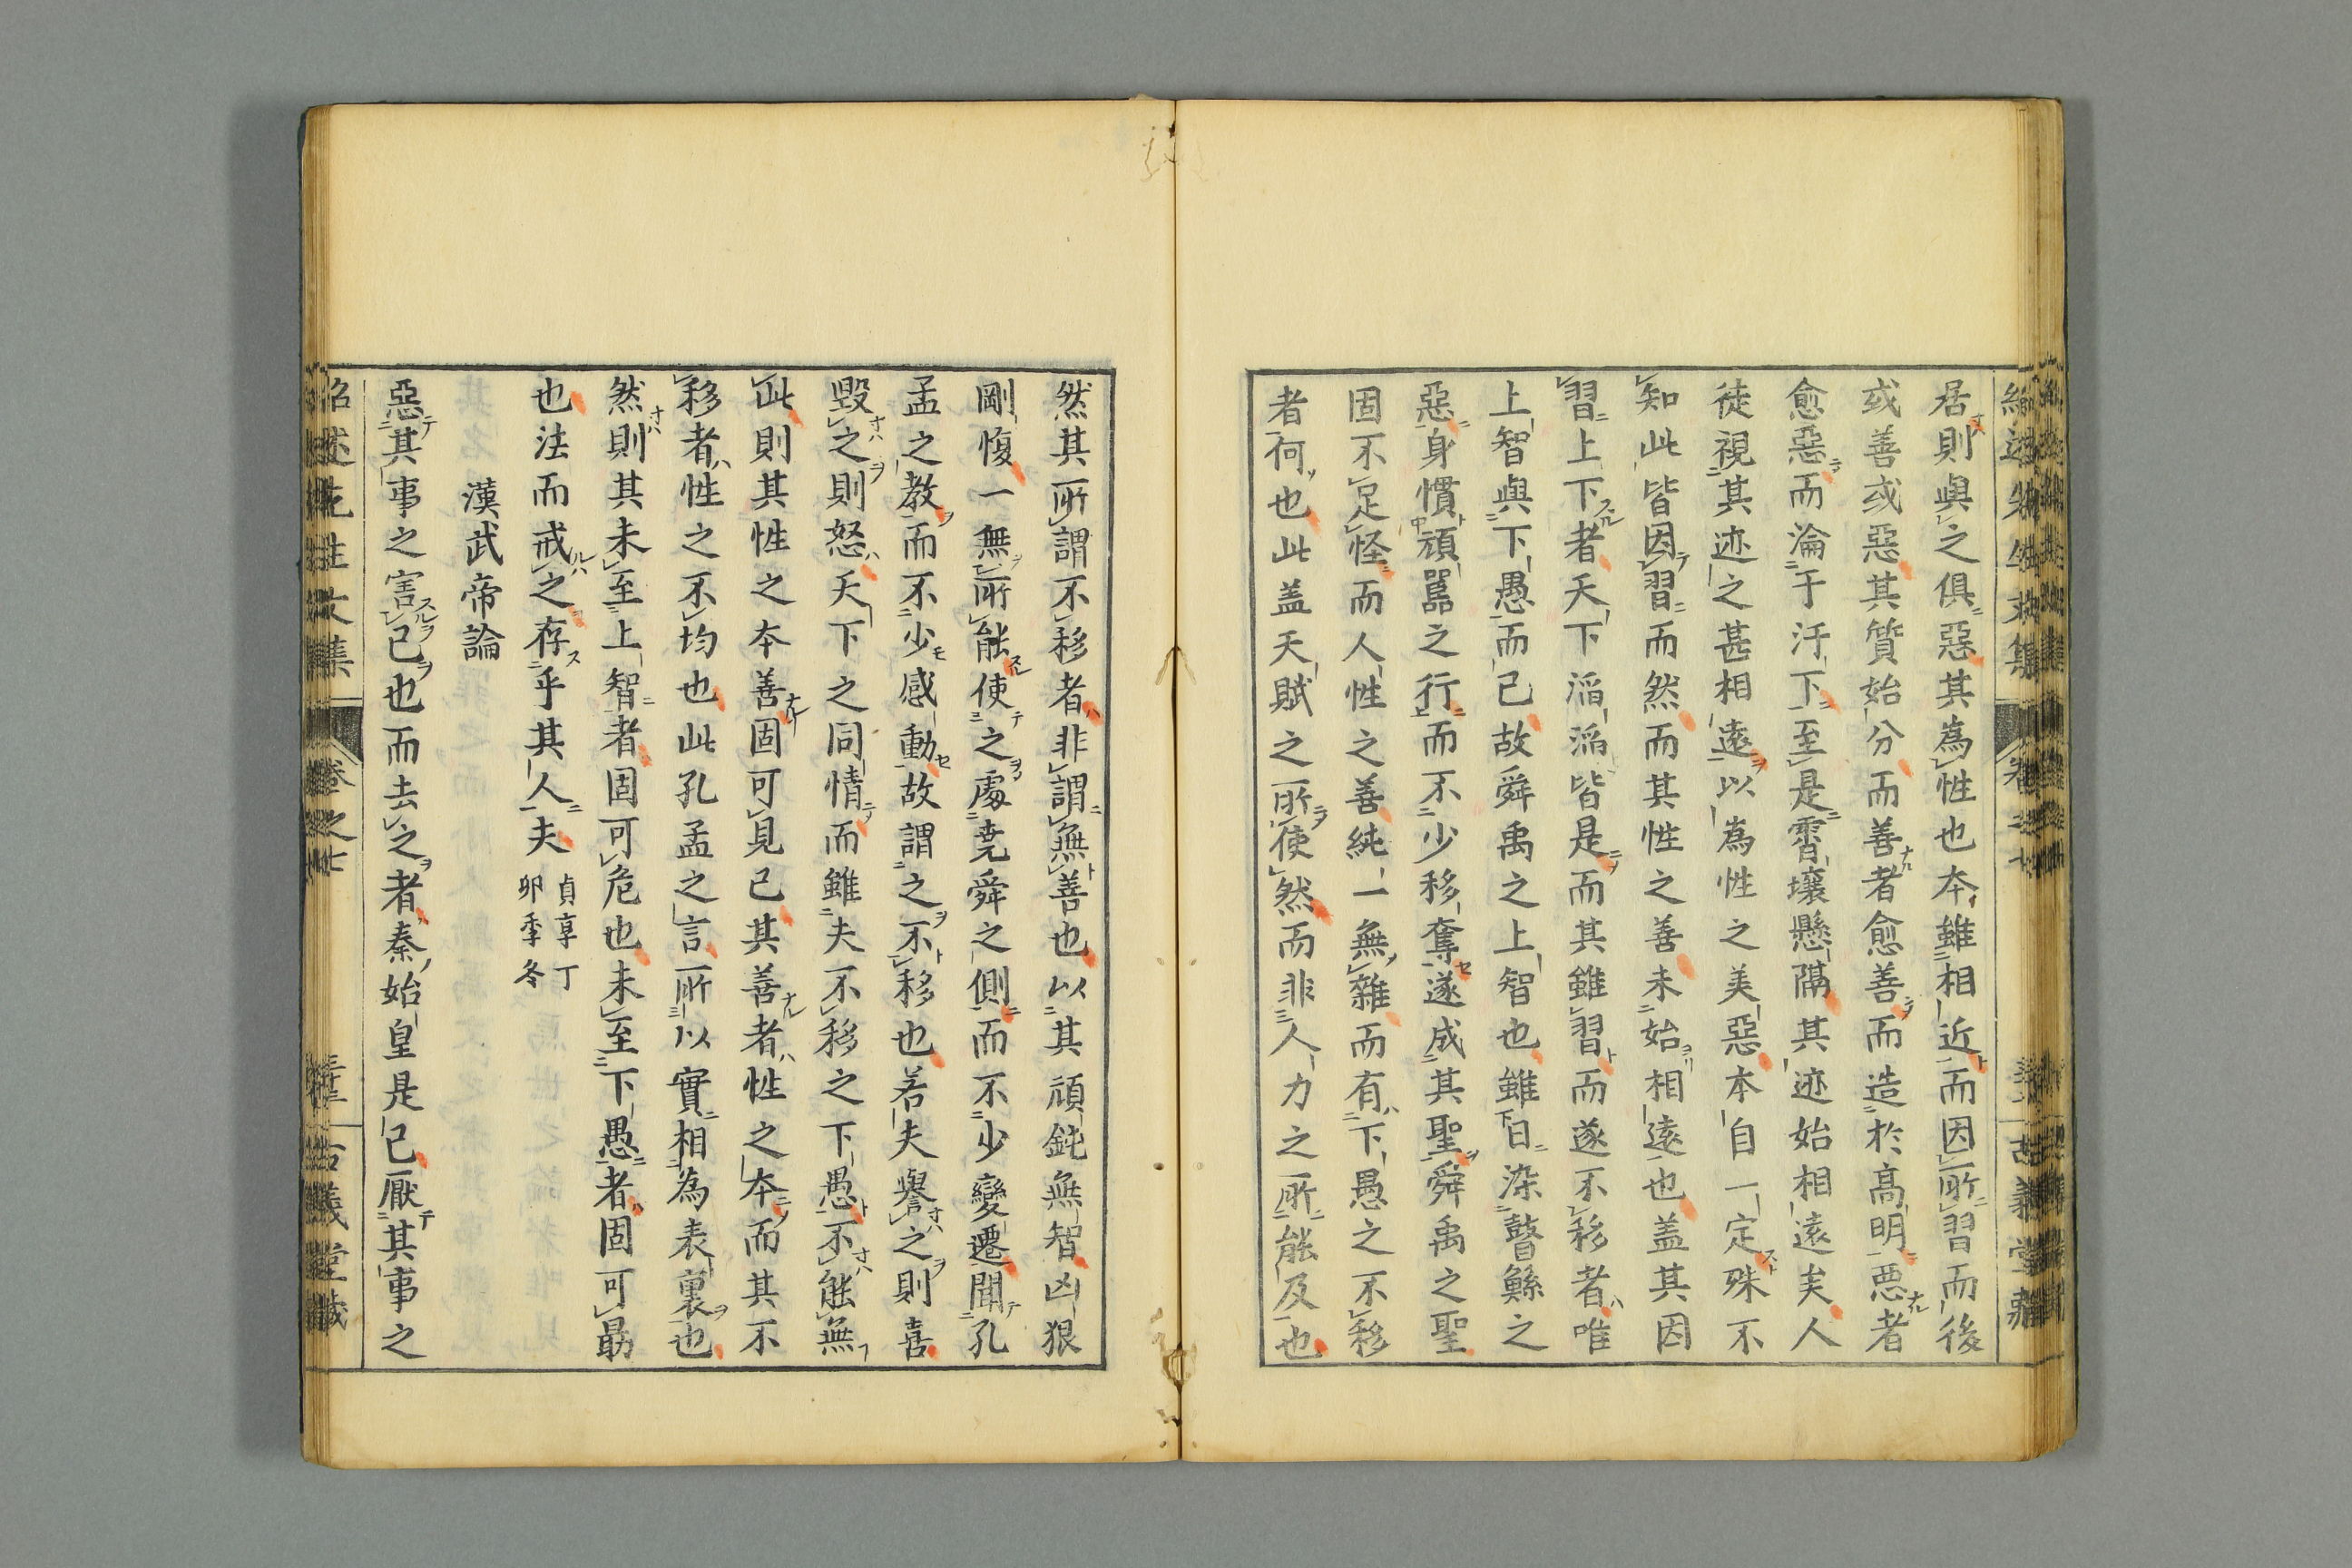 居則與之俱惡其為性也本雖相近而因所習而後
或善或惡其質始分而善者愈善而造於高明惡者
愈惡而淪于汙下至是霄壤懸隔其迹始相遠矣人
徒視其迹之甚相遠以為性之美惡本自一定殊不
知此皆因習而然而其性之善未始相遠也盖其因
習上下者天下滔滔皆是而其雖習而遂不移者唯
上智與下愚而已故舜禹之上智也雖日染瞽鯀之
惡身慣頑嚚之行而不少移奪遂成其聖舜禹之聖
固不足怪而人性之善純一無雜而有下愚之不移
者何也此盖天賦之所使然而非人力之所能及也
然其所謂不移者非謂無善也以其頑鈍無智凶狠
剛愎一無所能使之處堯舜之側而不少變遷聞孔
孟之教而不少感動故謂之不移也若夫譽之則喜
毀之則怒天下之同情而雖夫不移之下愚不能無
此則其性之本善固可見已其善者性之本而其不
移者性之不均也此孔孟之言所以實相為表裏也
然則其未至上智者固可危也未至下愚者固可勗
也法而戒之存乎其人夫
貞享丁
卯季冬
漢武帝論
惡其事之害已也而去之者秦始皇是已厭其事之
紹述先生文集 卷之廿 古義堂藏